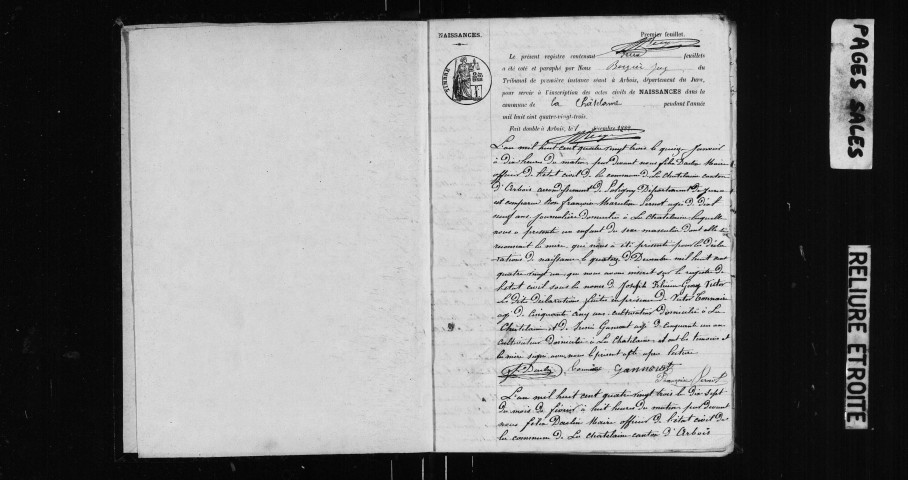 NAISSANCES.
Premier feuillet.
Le présent registre contenant feuillets
a été coté et paraphé par Nous Juge du
Tribunal de première instance séant à Arbois, département du Jura,
pour servir à l'inscription des actes civils de NAISSANCES dans la
commune de La Châtelaine pendant l'année
mil huit cent quatre-vingt-trois.
Fait double à Arbois, le décembre 1882
L'an mil huit cent quatre vingt trois le quinze Janvier
à dix heures du matin, par devant nous félix Daclin Maire
officier de l'état civil de la commune de La Châtelaine canton
d'Arbois arrondissement de Poligny Département du Jura
est comparue françoise Pernot agée de dix
neuf ans journalière domiciliée à La Chatelaine laquelle
nous a présenté un enfant du sexe masculin dont elle se
reconnait la mère, qui nous a été présenté pour la décla
rations de naissance le quatorze Décembre mil huit cent
quatre vingt un, que nous avons inscrit sur le registre de
l'état civil sous le noms de Joseph Victor
La dite déclaration faite en présence de Victor
agé de cinquante cinq ans cultivateur domicilié à La
Châtelaine et de Gannard agé de cinquante un ans
cultivateur domicilié à La Chatelaine et ont les témoins et
la mère signé avec nous le présent acte après lecture
Daclin gannard
françoise Pernot
L'an mil huit cent quatre vingt trois le dix sept
du mois de février à huit heures du matin par devant
nous félix Daclin Maire officier de l'état civil de
la commune de La châtelaine canton d'Arbois
PAGES SALES
RELIURE ETROITE